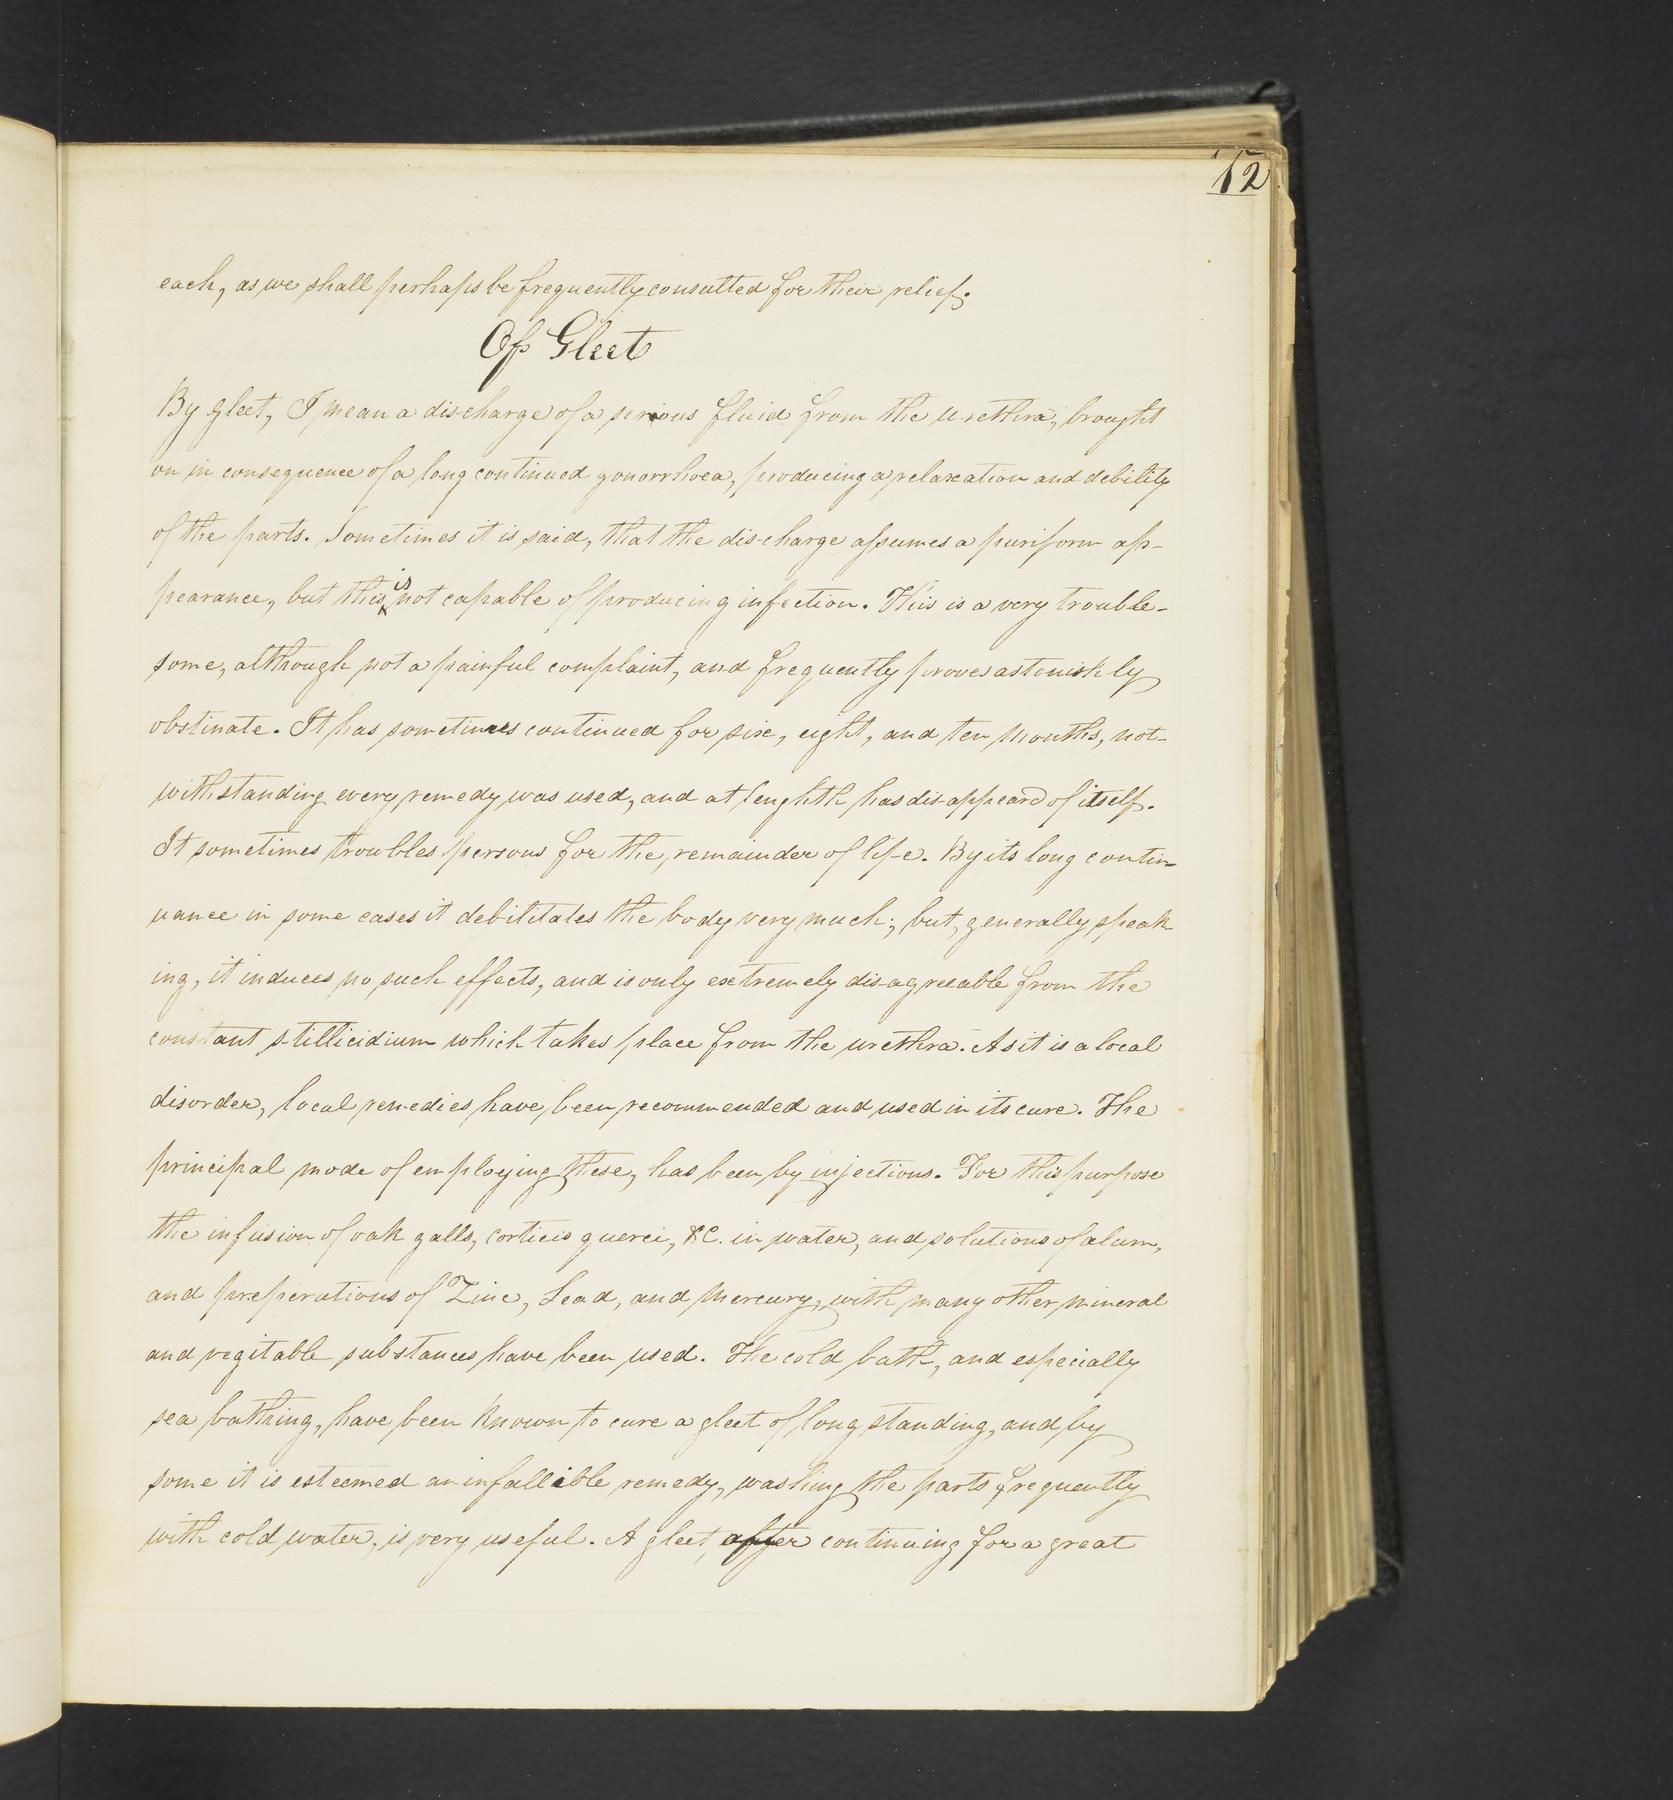 12
each, as we shall perhaps be frequently consulted for their relief.
Of Gleet
By gleet, I mean a discharge of a serious fluid from the urethra, brought
on in consequence of a long continued gonorrhoea, producing a relaxation and debility
of the parts. Sometimes it is said, that the discharge assumes a puriform ap-
pearance, but this is not capable of producing infection. This is a very trouble-
some, although not a painful complaint, and frequently proves astonishly
obstinate. It has sometimes continued for six, eight, and ten months, not-
withstanding every remedy was used, and at lenghth has disappeard of itself.
It sometimes troubles persons for the remainder of life. By its long contin-
uance in some cases it debilitates the body very much; but, generally speak-
ing, it induces no such effects, and is only extremely disagreeable from the
constant stillicidium which takes place from the urethra. As it is a local
disorder, local remedies have been recommended and used in its cure. The
principal mode of employing these, has been by injections. For this purpose
the infusion of oak galls, corticis querci, &C. in water, and solutions of alum,
and preperations of Zinc, Lead, and Mercury, with many other mineral
and vegitable substances have been used. The cold bath, and especially
sea bathing, have been known to cure a gleet of long standing, and by
some it is esteemed an infallible remedy, washing the parts frequently
with cold water, is very useful. A gleet, after continuing for a great